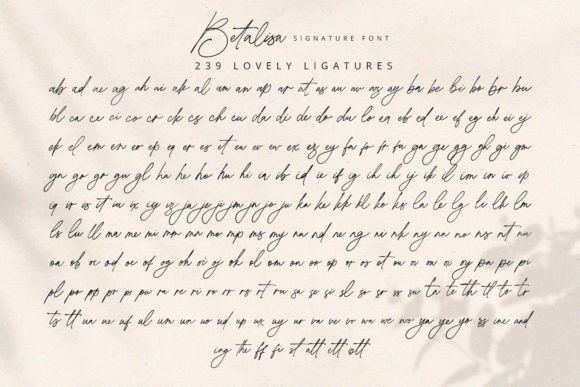 Betalisa SIGNATURE FONT
239 LOVELY LIGATURES
ab ad ae ag ah ai ak al am an ap ar at as au av ax ay ba be bi bo br bu
bl ca ce ci co cr ck cs ch cu da di de do du lo eb ed ee ef eg eh ei ej
ek el em en er ep eq er es et eu ev ew ex ez ey fa fo fr fu ga ge gg gh gi gm
gn go gr gu gl ha he ho hu hi ia ib id ie if ig ih ij ik il im in io ip
iq ir is it iu ix iy iz ja je ji jm jn jo ju ka ke kk kl ko ks la le lg li lk lm
ls lu ll ma me mi mr mn mo mp ms my na nd ne ng ni nk ny nn no ns nt nu
oa ob oc od oe of og oh oi oj ok ol om on oo op or os ot ou ov ow ox oy pa pe pi
pl po pp pr ps pu ra re ri ro rr rs rt ru sa se si sl so sr ss su ta te th tl to tr
ts tt ua ue uf ul um un uo ud up ux uy ur va ve vo wa we wo ya ye yo zz ine and
ing the ff fi st att ett ott